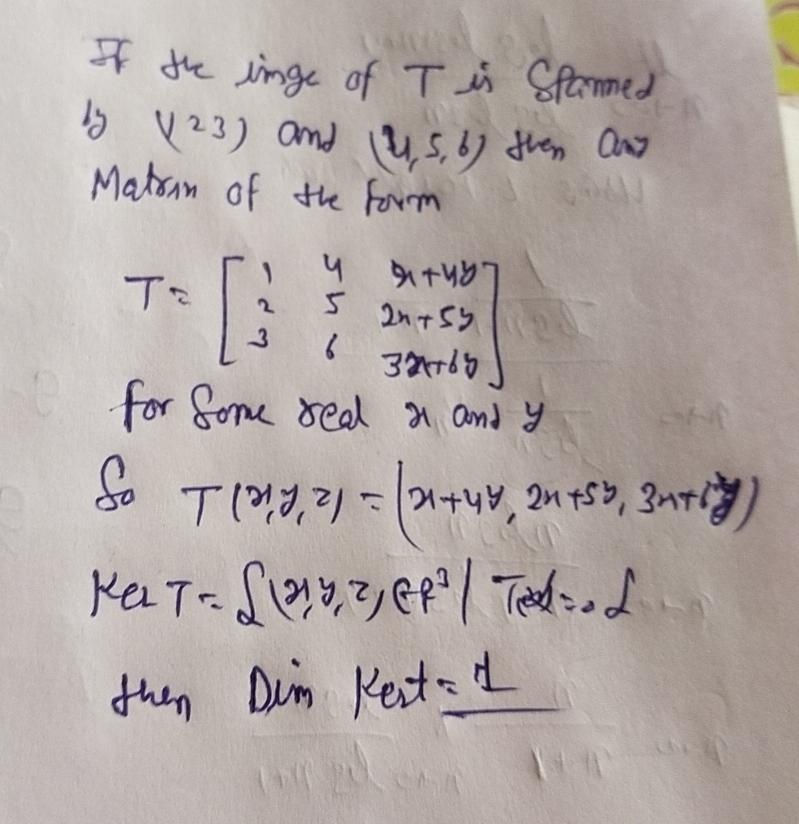 If the imge of T is Spanned
by (1 2 3) and (4, 5, 6) then any
Matrix of the form
T = [ 1 4 x+4y
2 5 2x+5y
3 6 3x+6y ]
for Some real x and y
So T(x, y, z) = (x+4y, 2x+5y, 3x+6y)
Ker T = { (x, y, z) ∈ R³ | = 0 }
then Dim Kert = 1